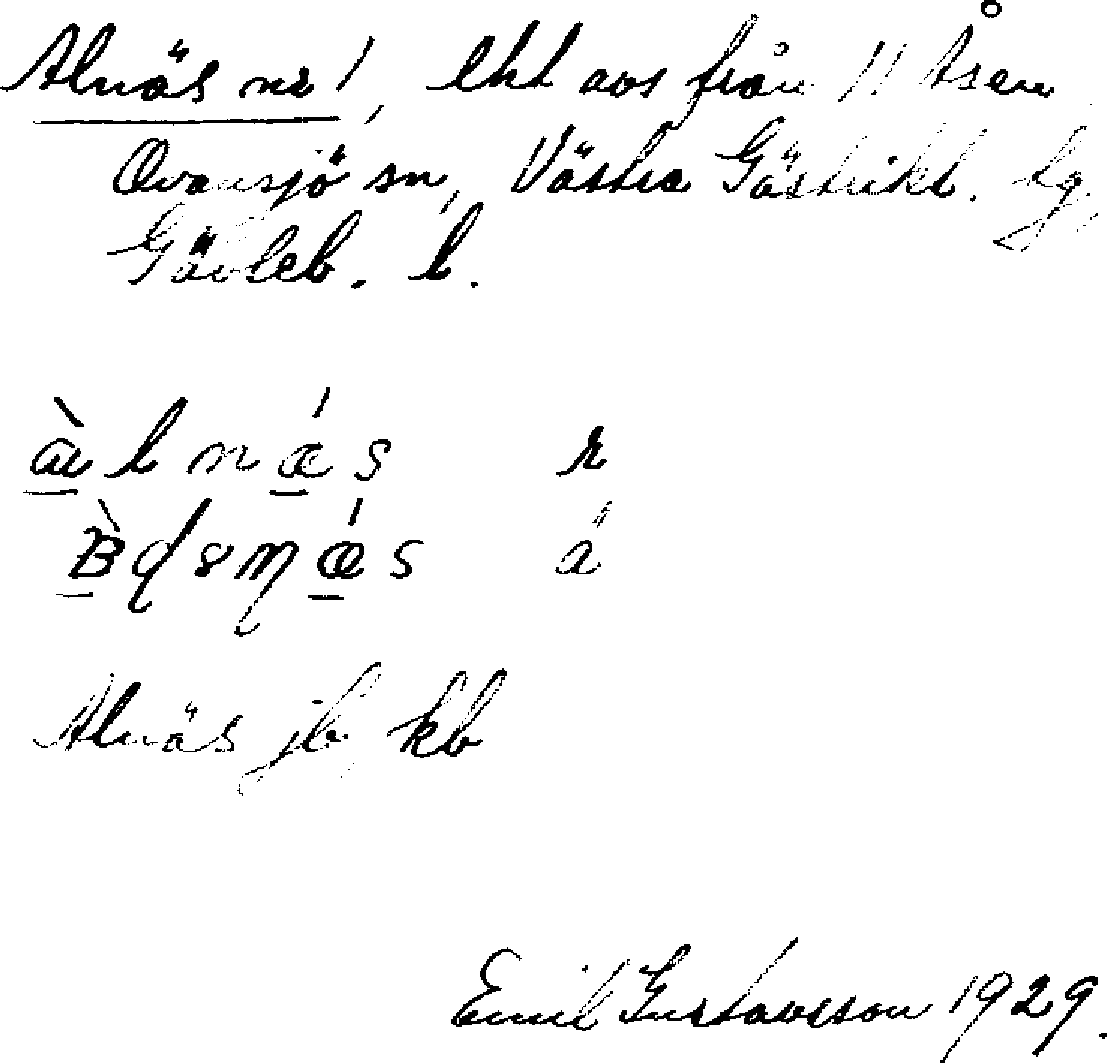 Alnäs nr 1, lht avs från 11 Åsen
Ovansjö sn, Västra Gästrikl. tg,
Gävleb. l.
àlnǽs r
s ä
Alnäs jb, kb
Emil Gustavsson 1929.